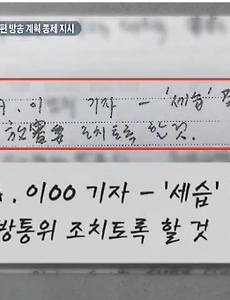 편 방송 계획 통제 지시
이 기자 - '세습'
조치토록 할 것.
. 이OO 기자 - '세습'
방통위 조치토록 할 것